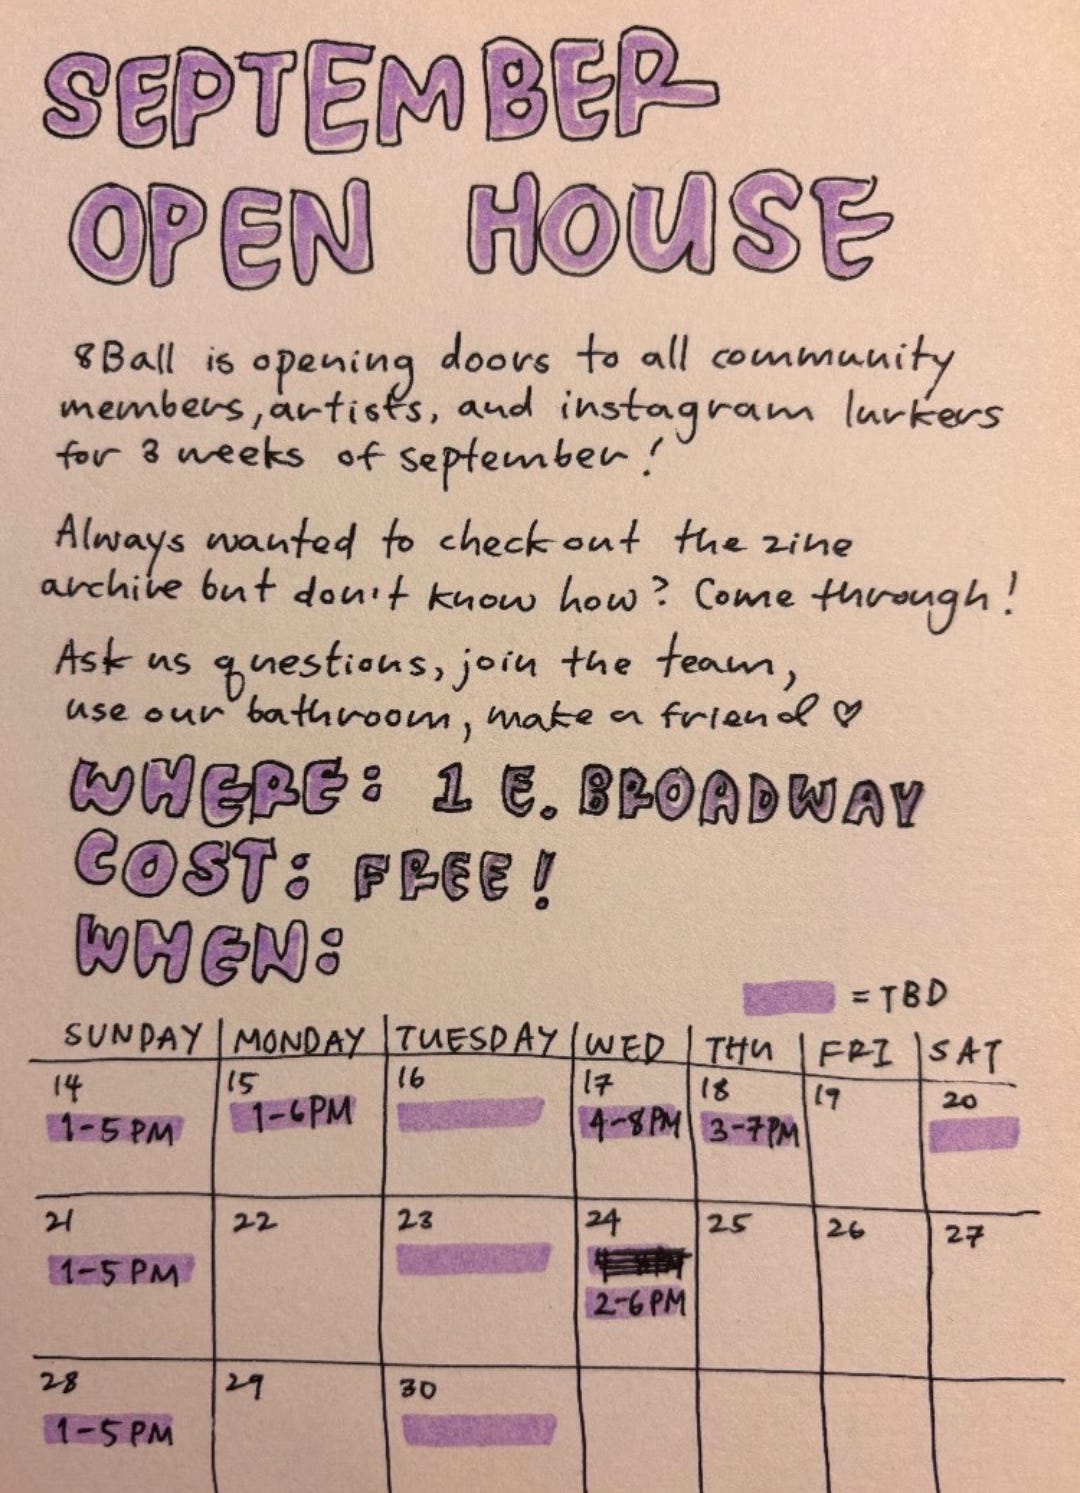 SEPTEMBER
OPEN HOUSE
8Ball is opening doors to all community
members, artists, and instagram lurkers
for 3 weeks of september!
Always wanted to check out the zine
archive but don't know how? Come through!
Ask us questions, join the team,
use our bathroom, make a friend ♡
WHERE: 1 E. BROADWAY
COST: FREE!
WHEN:
= TBD
SUNDAY MONDAY TUESDAY WED THU FRI SAT
14 15 16 17 18 19 20
1-5 PM 1-6PM 4-8PM 3-7PM
21 22 23 24 25 26 27
1-5 PM
2-6PM
28 29 30
1-5 PM